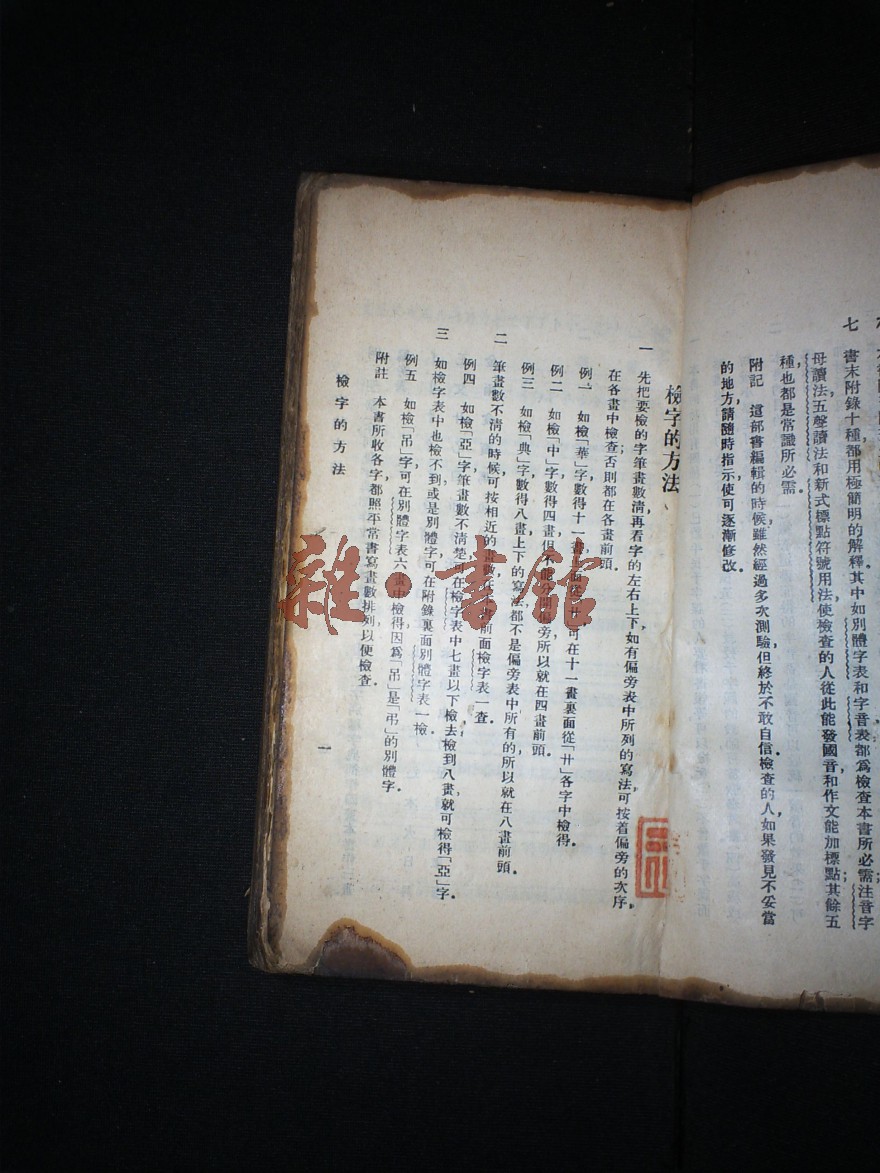 七　書末附錄十種都用極簡明的解釋其中如別體字表和字音表都爲檢查本書所必需；注音字
母讀法五聲讀法和新式標點符號用法使檢查的人從此能發國音和作文能加標點其餘五
種也都是常識所必需．
附記　這部書編輯的時候雖然經過多次測驗但終於不敢自信檢查的人如果發見不妥當
的地方，請隨時指示，使可逐漸修改．
檢字的方法
一　先把要檢的字筆畫數清，再看字的左右上下，如有偏旁表中所列的寫法，可按着偏旁的次序，
在各畫中檢查；否則都在各畫前頭．
例一　如檢「華」字，數得十一畫，上面從「廾」，可在十一畫裏面從「廾」各字中檢得．
例二　如檢「中」字，數得四畫，但不能分開偏旁，所以就在四畫前頭．
例三　如檢「典」字，數得八畫，上下的寫法，都不是偏旁表中所有的，所以就在八畫前頭．
二　筆畫數不清的時候，可按相近的畫數，在前面檢字表一查．
例四　如檢「亞」字，筆畫數不清楚，可在檢字表中七畫以下檢去，檢到八畫，就可檢得「亞」字．
三　如檢字表中也檢不到，或是別體字，可在附錄裏面別體字表一檢．
例五　如檢「吊」字，可在別體字表六畫中檢得，因爲「吊」是「弔」的別體字．
附註　本書所收各字，都照平常書寫畫數排列，以便檢查．
檢字的方法
一
雜·書館